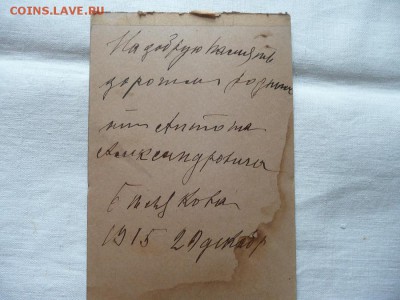 COINS.LAVE.RU
На добрую память
дорогим родным
от Антона
Александровича
1915 20 декабр